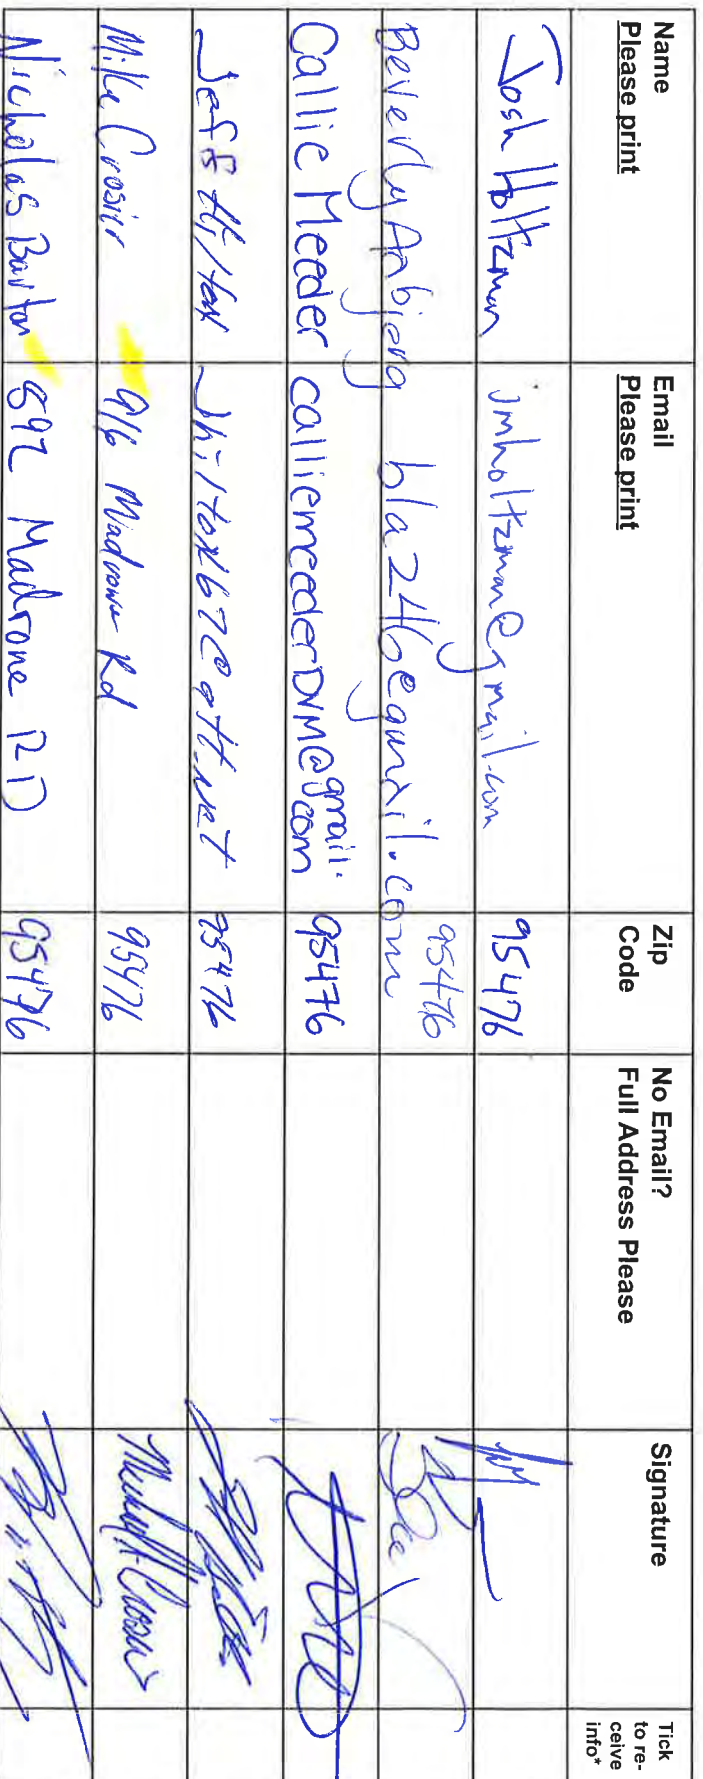 Name
Please print
Email
Please print
Zip
Code
No Email?
Full Address Please
Signature
Tick
to re-
ceive
info*
Josh Holtzman jmholtzman@gmail.com 95476
Beverly Anbjorg bla246@gmail.com 95476
Callie Meeder calliemeederDVM@gmail.
com 95476
Jeff Hilton 95476
Mike Crosier 916 Madrone Rd 95476
Nicholas Barton 892 Madrone RD 95476